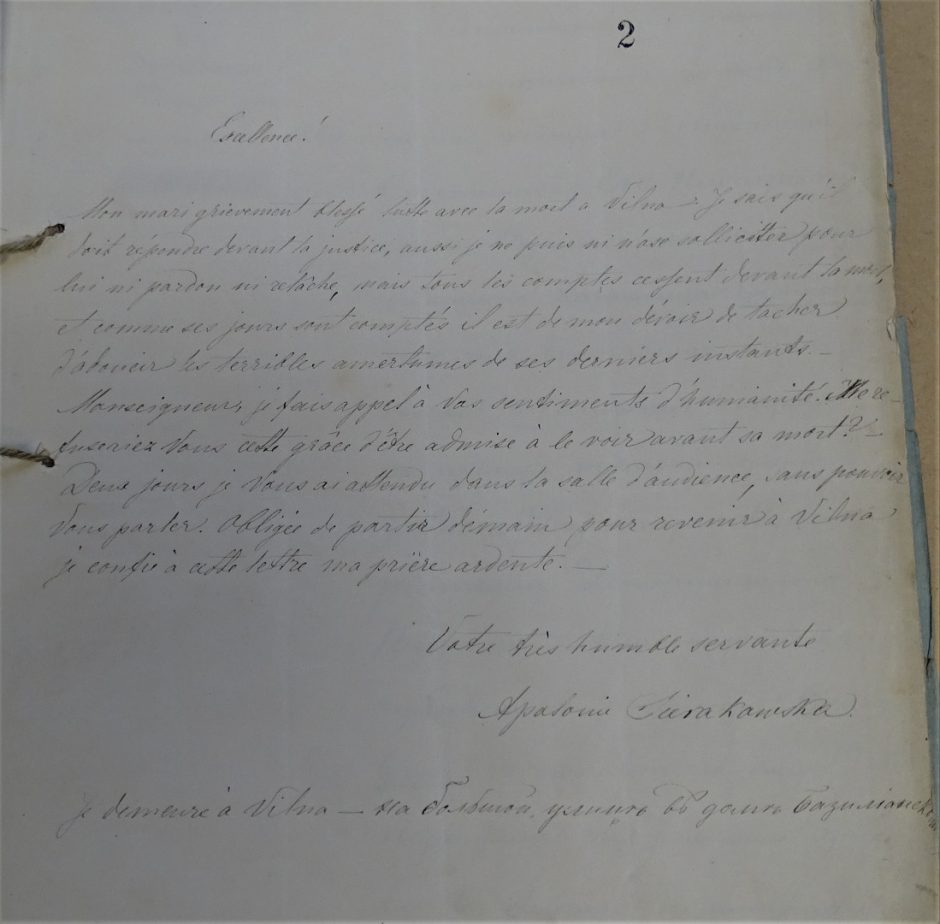 2
Excellence!
Mon mari grievement blessé lutte avec la mort a Vilna — Je sais qu'il
doit répondre devant la justice, aussi je ne puis ni n'ose solliciter pour
lui ni pardon ni relâche, mais tous les comptes cessent devant la mort,
et comme ses jours sont comptés il est de mon dévoir de tacher
d'adoucir les terribles amertumes de ses derniers instants. —
Monseigneur, je fais appel à vos sentiments d'humanité. Me re-
fuseriez Vous cette grâce d'être admise à le voir avant sa mort? —
Deux jours je Vous ai attendu dans la salle d'audience, sans pouvoir
Vous parler. Obligée de partir démain pour revenir à Vilna
je confie à cette lettre ma prière ardente. —
Votre très humble servante
Apolonie Sierakowska.
Je demeure à Vilna — на большой улицѣ въ домѣ Базилiанскомъ